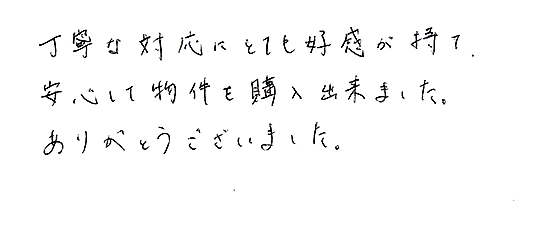 丁寧な対応にとても好感が持て、
安心して物件を購入出来ました。
ありがとうございました。